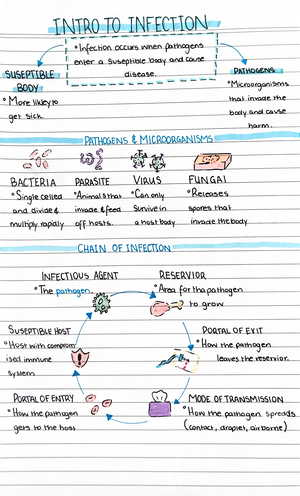 INTRO TO INFECTION
• Infection occurs when pathogens
enter a suseptible body and cause
disease.
SUSEPTIBLE
BODY
• More likley to
get sick.
PATHOGENS
• Microorganisms
that invade the
body and cause
harm.
PATHOGENS & MICROORGANISMS
BACTERIA
• Single celled
and divide &
multiply rapidly
PARASITE
• Animals that
invade & feed
off hosts.
VIRUS
• Can only
survive in
a host body
FUNGAI
• Releases
spores that
invade the body
CHAIN OF INFECTION
INFECTIOUS AGENT
• The pathogen.
RESERVIOR
• Area for the pathogen
to grow
PORTAL OF EXIT
• How the pathogen
leaves the reservior.
MODE OF TRANSMISSION
• How the pathogen spreads
(contact, droplet, airborne)
PORTAL OF ENTRY
• How the pathogen
gets to the host
SUSEPTIBLE HOST
• Host with comprom
ised immune
system